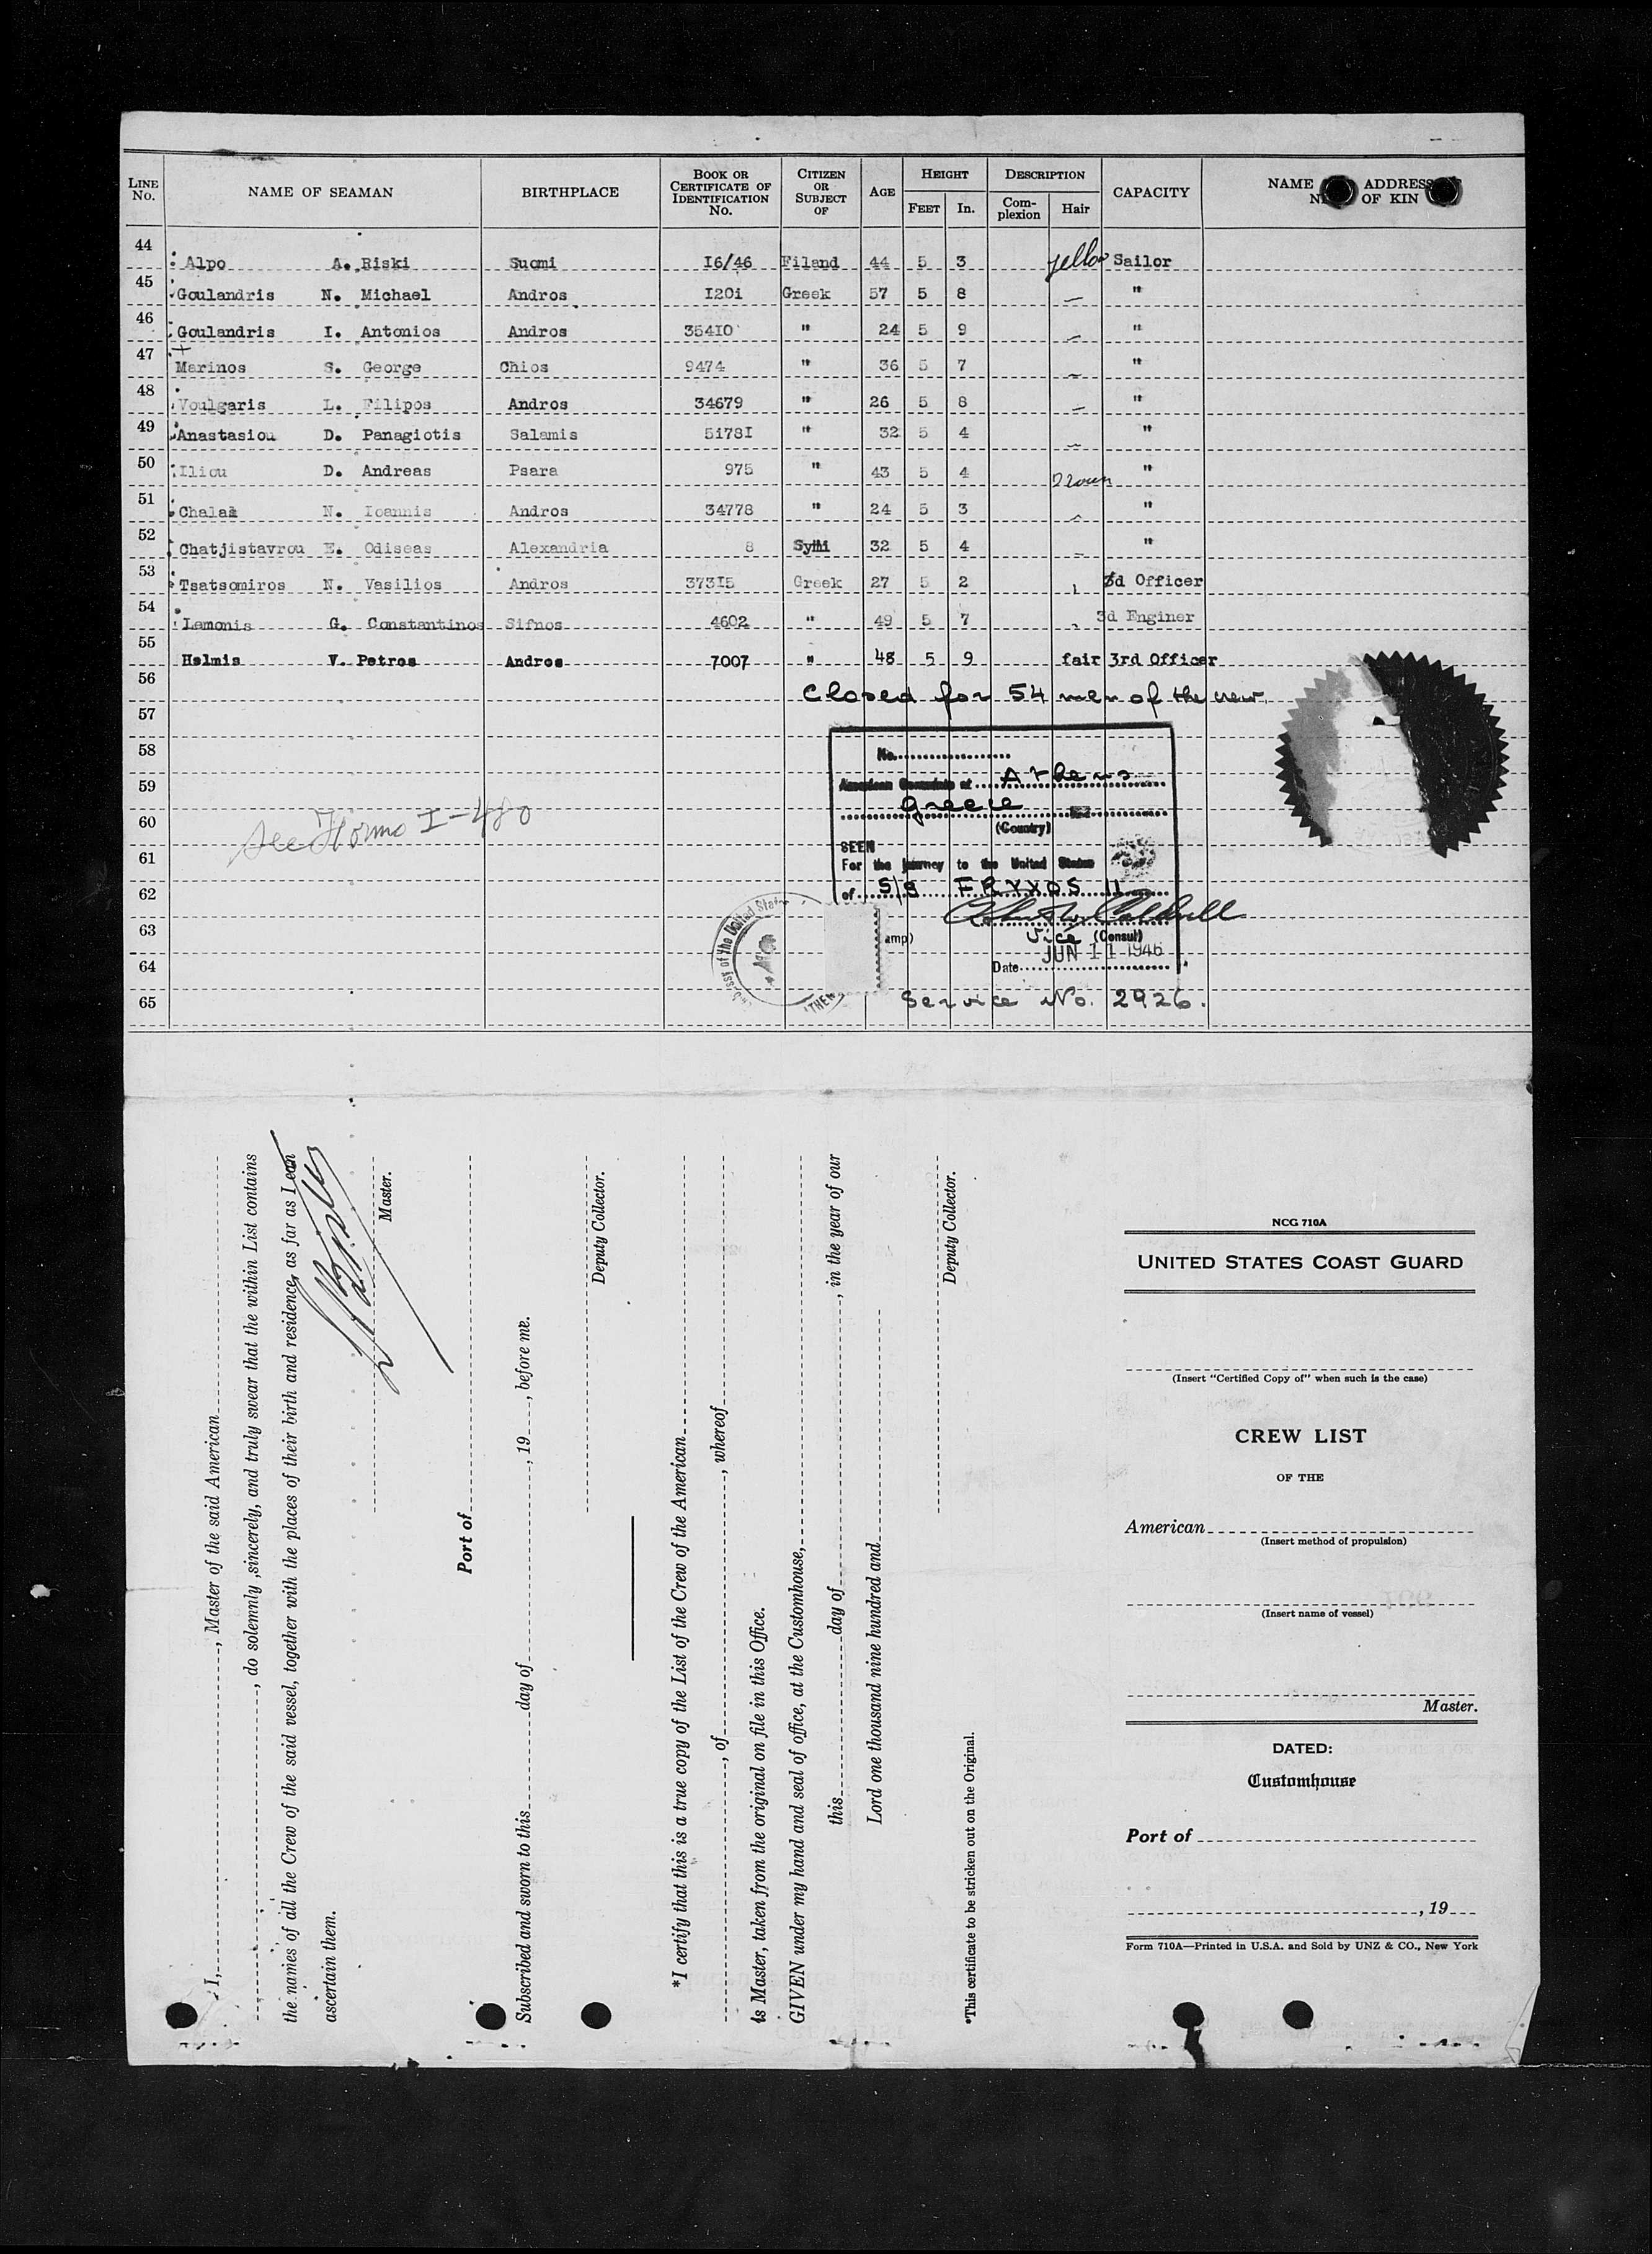 LINE No. NAME OF SEAMAN BIRTHPLACE BOOK OR CERTIFICATE OF IDENTIFICATION No. CITIZEN OR SUBJECT OF AGE HEIGHT FEET In. DESCRIPTION Complexion Hair CAPACITY NAME ADDRESS OF KIN
44 Alpo A. Riski Suomi I6/46 Filand 44 5 3 yellow Sailor
45 Goulandris N. Michael Andros I20i Greek 57 5 8 — "
46 Goulandris I. Antonios Andros 354I0 " 24 5 9 — "
47 Marinos S. George Chios 9474 " 36 5 7 — "
48 Voulgaris L. Filipos Andros 34679 " 26 5 8 — "
49 Anastasiou D. Panagiotis Salamis 5i78I " 32 5 4 — "
50 Iliou D. Andreas Psara 975 " 43 5 4 "
51 Chalas N. Ioannis Andros 34778 " 24 5 3 — "
52 Chatjistavrou E. Odiseas Alexandria 8 32 5 4 — "
53 Tsatsomiros N. Vasilios Andros 373I5 Greek 27 5 2 d Officer
54 Lamonis G. Constantinos Sifnos 4602 " 49 5 7 3d Enginer
55 Helmis V. Petros Andros 7007 " 48 5 9 fair 3rd Officer
56 Closed for 54 men of the crew.
57
58 No.
59 American Consulate at Athens
Greece
60 (Country)
see Forms I-480
61 SEEN
For the journey to the United States
62 of S/S FRYXOS 11
63 Vice (Consul)
amp)
64 Date JUN 11 1946
65 Service No. 2926.
Embassy of the United States
I, , Master of the said American
, do solemnly ,sincerely, and truly swear that the within List contains
the names of all the Crew of the said vessel, together with the places of their birth and residence, as far as I can
ascertain them.
Master.
Port of
Subscribed and sworn to this day of , 19 , before me.
Deputy Collector.
*I certify that this is a true copy of the List of the Crew of the American
, of , whereof
is Master, taken from the original on file in this Office.
GIVEN under my hand and seal of office, at the Customhouse,
this day of , in the year of our
Lord one thousand nine hundred and
Deputy Collector.
*This certificate to be stricken out on the Original.
NCG 710A
UNITED STATES COAST GUARD
(Insert "Certified Copy of" when such is the case)
CREW LIST
OF THE
American
(Insert method of propulsion)
(Insert name of vessel)
Master.
DATED:
Customhouse
Port of
, 19
Form 710A—Printed in U.S.A. and Sold by UNZ & CO., New York